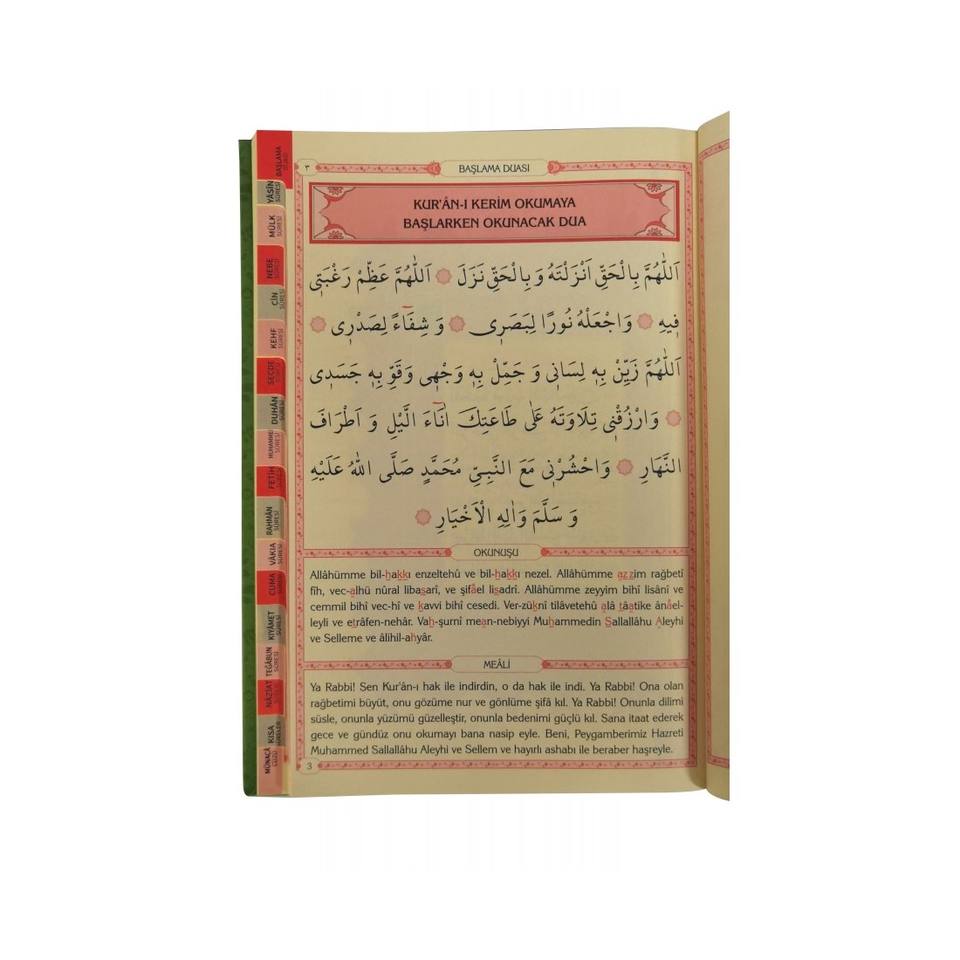 BAŞLAMA
YÂSÎN
SÛRESİ
MÜLK
SÛRESİ
NEBE
SÛRESİ
CİN
SÛRESİ
KEHF
SÛRESİ
SECDE
DUHÂN
SÛRESİ
MUHAMMED
SÛRESİ
FETİH
RAHMÂN
SÛRESİ
VÂKIA
SÛRESİ
CUMA
KIYÂMET
SÛRESİ
TEĞÂBUN
SÛRESİ
NÂZİÂT
KISA
SÛRELER
MÜNACÂ
٣
BAŞLAMA DUASI
KUR'ÂN-I KERİM OKUMAYA
BAŞLARKEN OKUNACAK DUA
اَللّٰهُمَّ بِالْحَقِّ اَنْزَلْتَهُ وَ بِالْحَقِّ نَزَلَ ۞ اَللّٰهُمَّ عَظِّمْ رَغْبَتٖى
فٖيهِ ۞ وَاجْعَلْهُ نُورًا لِبَصَرٖى ۞ وَ شِفَٓاءً لِصَدْرٖى ۞
اَللّٰهُمَّ زَيِّنْ بِهٖ لِسَانٖى وَ جَمِّلْ بِهٖ وَجْهٖى وَقَوِّ بِهٖ جَسَدٖى
۞ وَارْزُقْنٖى تِلَاوَتَهُ عَلٰى طَاعَتِكَ اٰنَٓاءَ الَّيْلِ وَ اَطْرَافَ
النَّهَارِ ۞ وَاحْشُرْنٖى مَعَ النَّبِىِّ مُحَمَّدٍ صَلَّى اللّٰهُ عَلَيْهِ
وَ سَلَّمَ وَاٰلِهِ الْاَخْيَارِ ۞
OKUNUŞU
Allâhümme bil-hakkı enzeltehû ve bil-hakkı nezel. Allâhümme azzim rağbetî
fîh, vec-alhü nûral libasarî, ve şifâel lisadrî. Allâhümme zeyyim bihî lisânî ve
cemmil bihî vec-hî ve kavvi bihî cesedî. Ver-züknî tilâvetehû alâ tâatike ânâel-
leyli ve etrâfen-nehâr. Vah-şurnî mean-nebiyyi Muhammedin Sallallâhu Aleyhi
ve Selleme ve âlihil-ahyâr.
MEÂLİ
Ya Rabbi! Sen Kur'ân-ı hak ile indirdin, o da hak ile indi. Ya Rabbi! Ona olan
rağbetimi büyüt, onu gözüme nur ve gönlüme şifâ kıl. Ya Rabbi! Onunla dilimi
süsle, onunla yüzümü güzelleştir, onunla bedenimi güçlü kıl. Sana itaat ederek
gece ve gündüz onu okumayı bana nasip eyle. Beni, Peygamberimiz Hazreti
Muhammed Sallallâhu Aleyhi ve Sellem ve hayırlı ashabı ile beraber haşreyle.
3